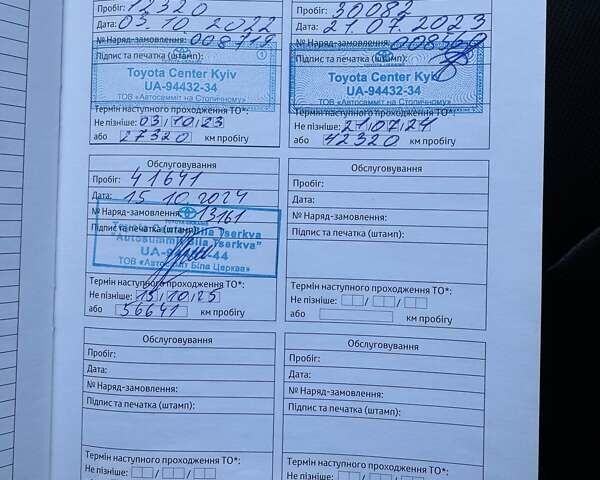 Пробіг: 12320
Дата: 03.10.2022
№ Наряд-замовлення: 008719
Підпис та печатка (штамп):
Toyota Center Kyiv
UA-94432-34
ТОВ «Автосамміт на Столичному»
Термін наступного проходження ТО*:
Не пізніше: 03/10/23
або 27320 км пробігу
Пробіг: 30082
Дата: 21.07.2023
№ Наряд-замовлення:
Підпис та печатка (штамп):
Toyota Center Kyiv
UA-94432-34
ТОВ «Автосамміт на Столичному»
Термін наступного проходження ТО*:
Не пізніше: 21/07/24
або 42320 км пробігу
Обслуговування
Пробіг: 41641
Дата: 15.10.2024
№ Наряд-замовлення: 13161
Підпис та печатка (штамп):
Toyota Center Bila Tserkva
"Autosummit Bila Tserkva"
ТОВ «Автосаміт Біла Церква»
Термін наступного проходження ТО*:
Не пізніше: 15/10/25
або 56641 км пробігу
Обслуговування
Пробіг:
Дата:
№ Наряд-замовлення:
Підпис та печатка (штамп):
Термін наступного проходження ТО*:
Не пізніше: / /
або км пробігу
Обслуговування
Пробіг:
Дата:
№ Наряд-замовлення:
Підпис та печатка (штамп):
Термін наступного проходження ТО*:
Не пізніше: / /
Обслуговування
Пробіг:
Дата:
№ Наряд-замовлення:
Підпис та печатка (штамп):
Термін наступного проходження ТО*:
Не пізніше: / /